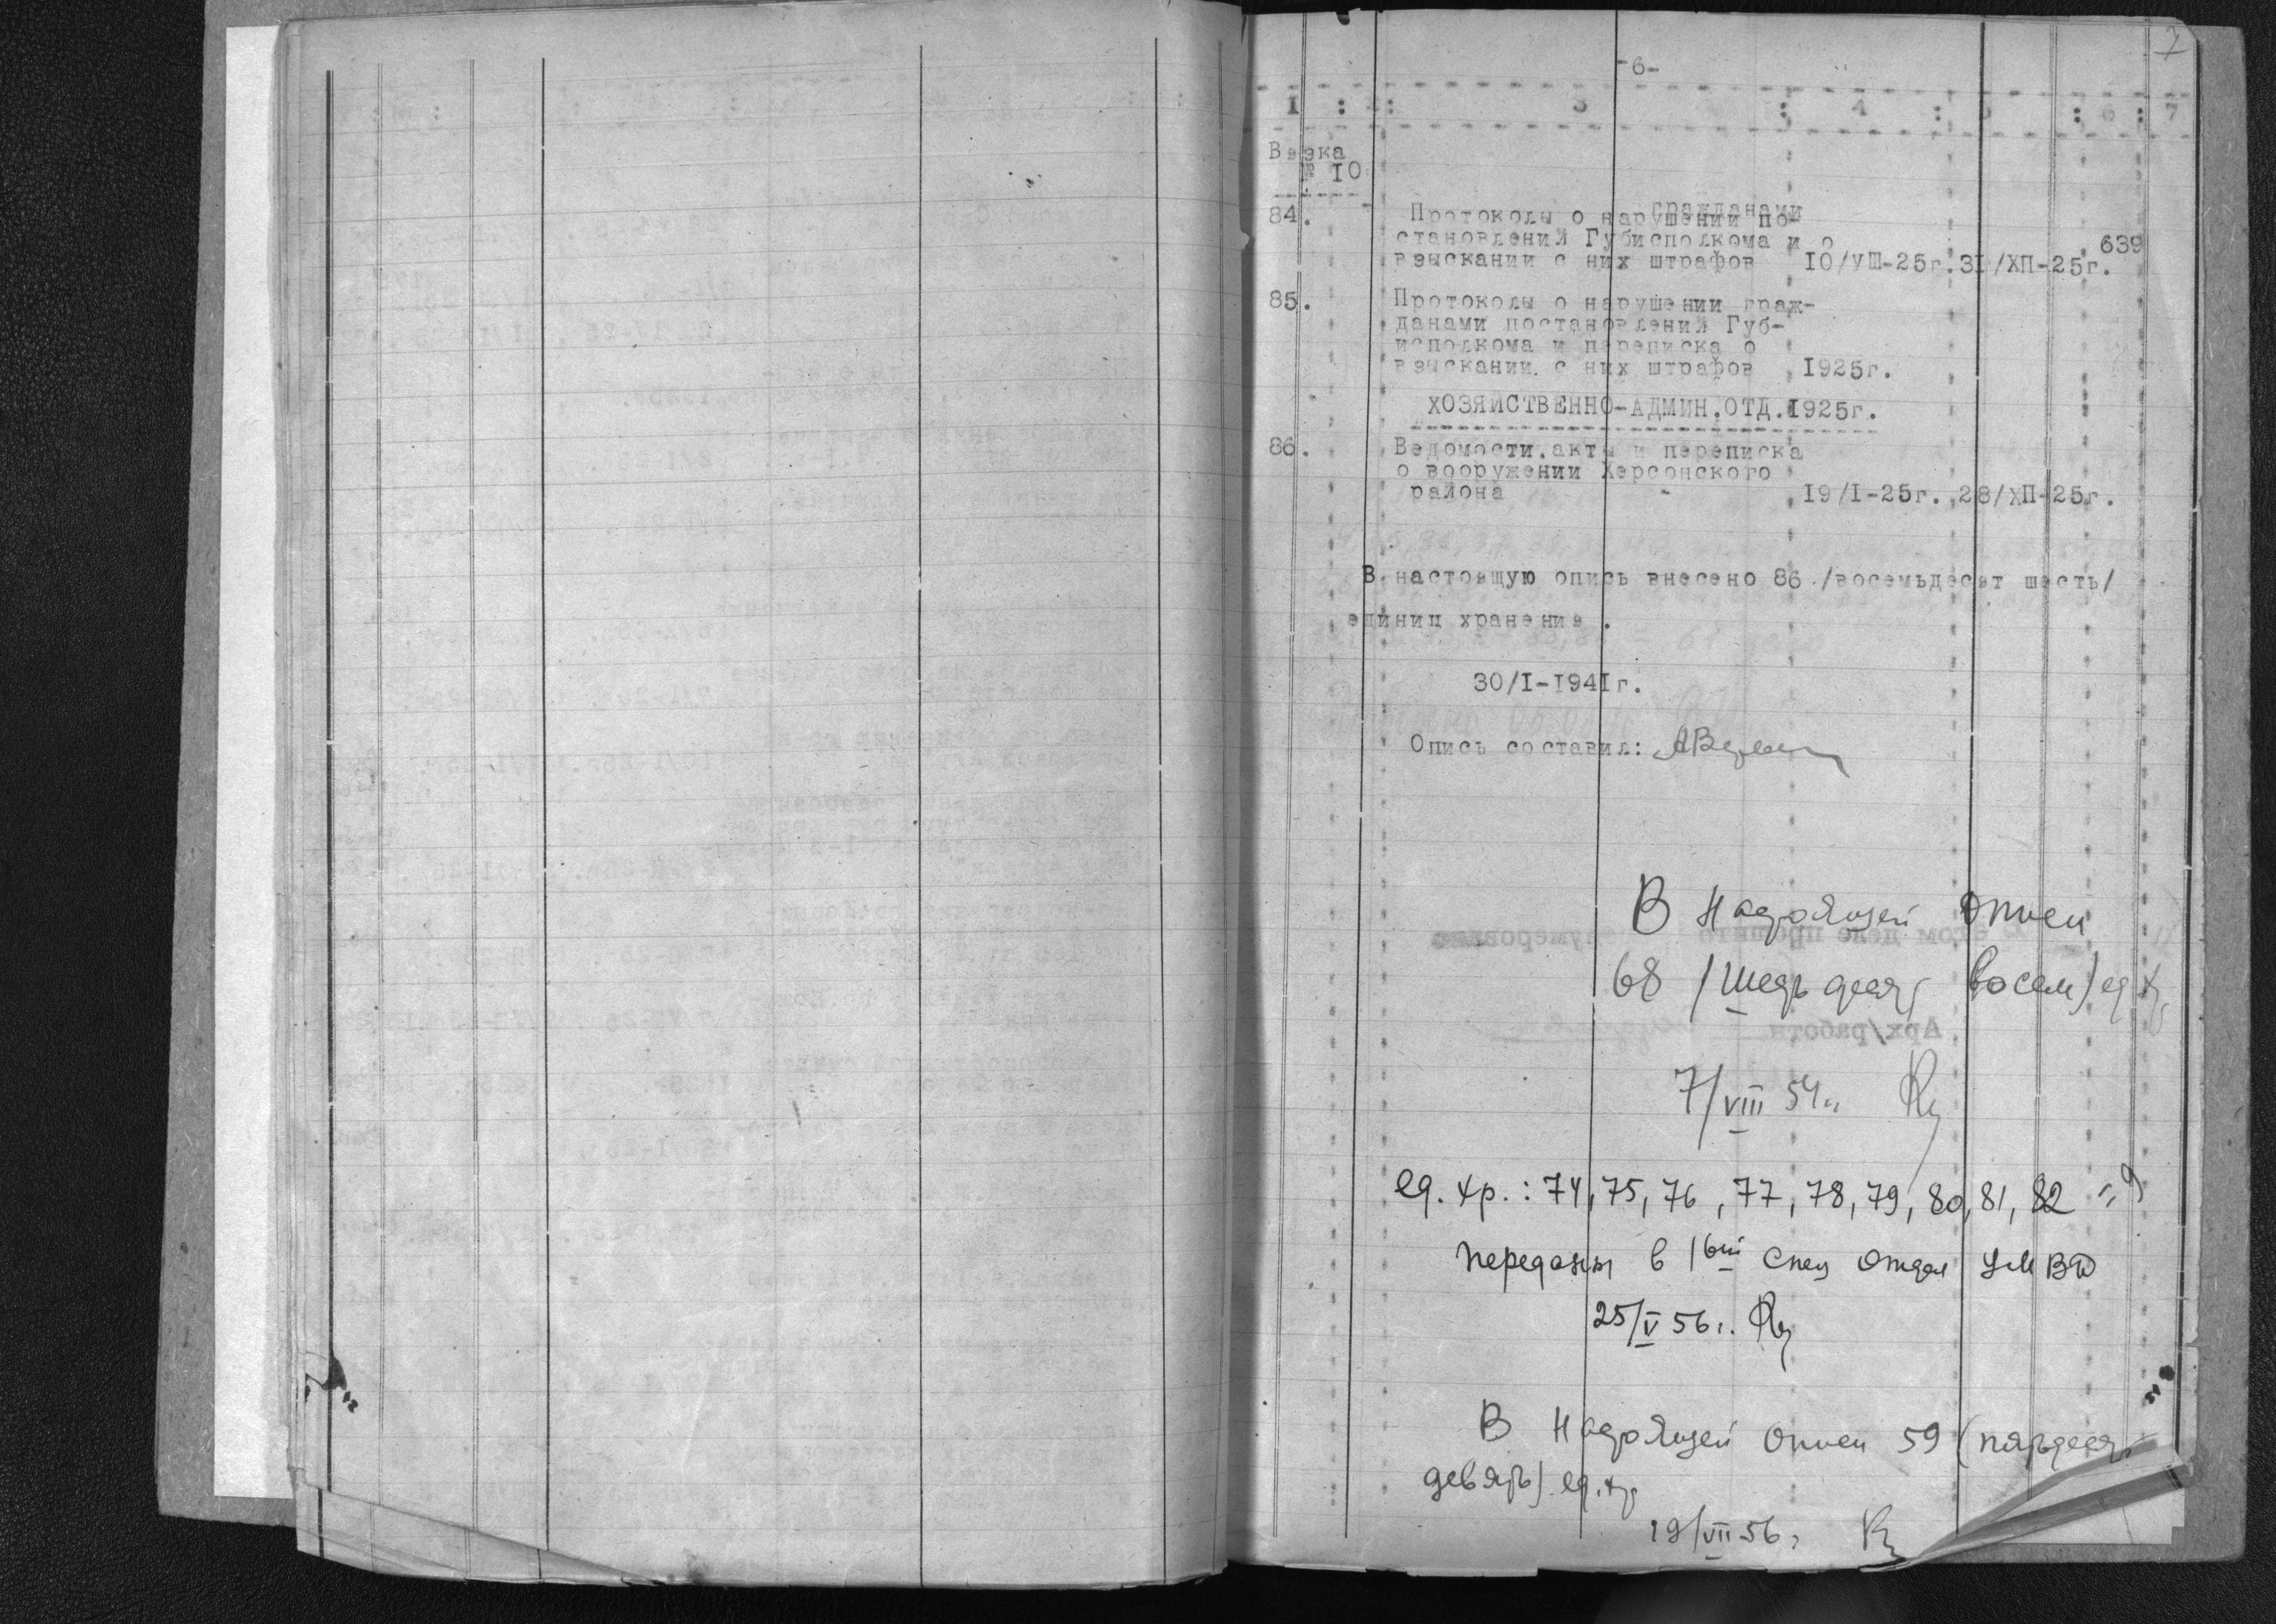 7
-6-
1 : 2: 3 : 4 : 5 : 6 : 7
Вязка
№ 10
84. Протоколы о нарушении гражданами по-
становлений Губисполкома и о
взыскании с них штрафов 10/УШ-25г. 31/ХП-25г. 639
85. Протоколы о нарушении граж-
данами постановлений Губ-
исполкома и переписка о
взыскании с них штрафов 1925г.
ХОЗЯЙСТВЕННО-АДМИН.ОТД.1925г.
86. Ведомости, акты и переписка
о вооружении Херсонского
района 19/I-25г. 28/ХП-25г.
В настоящую опись внесено 86 /восемьдесят шесть/
единиц хранения.
30/I-1941г.
Опись составил:
В настоящей описи
68 /шестьдесят восем/ ед. хр.
7/VIII 54г.
ед. хр.: 74, 75, 76, 77, 78, 79, 80, 81, 82 = 9
переданы в 1ый спец отдел УМВД
25/V 56г.
В настоящей описи 59 (пятьдесят
девять) ед. хр.
19/VII 56г.